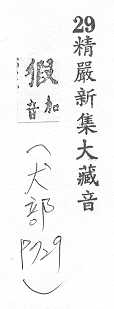 29精嚴新集大藏音
猳
加音
(犬部P729)